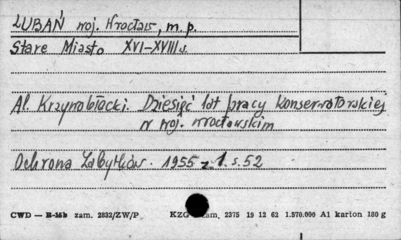 LUBAŃ woj. Wrocław, m. p.
Stare Miasto XVI-XVIII w.
Al. Krzyrobłocki. Dziesięć lat pracy konserwatorskiej
w woj. wrocławskim
Ochrona Zabytków. 1955 z. 1. s. 52
CWD — B-16b zam. 2832/ZW/P. KZG zam. 2375 19 12 62 1.570.000 A1 karton 180 g